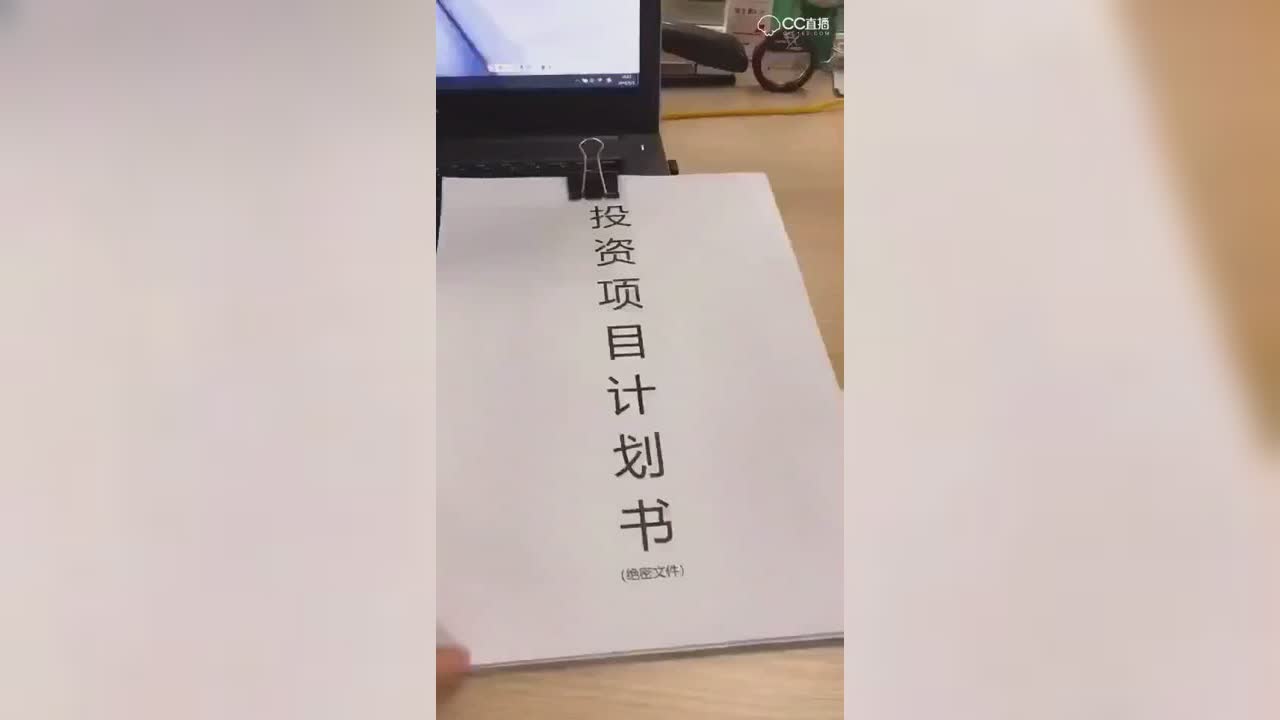 CC直播
投资项目计划书
(绝密文件)